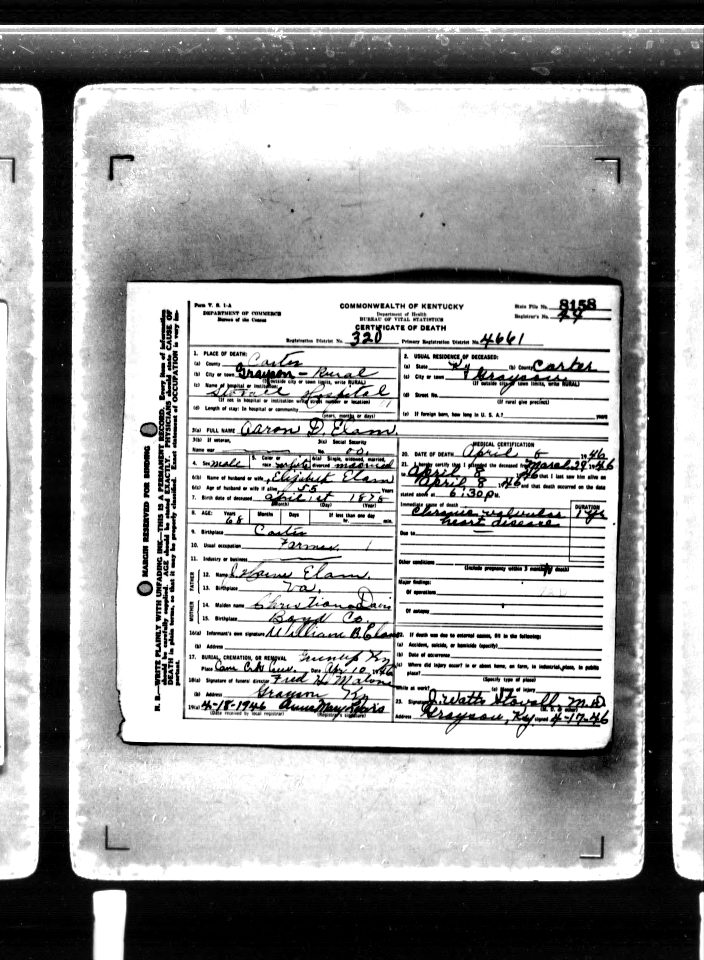 Form V. S. 1-A
DEPARTMENT OF COMMERCE
Bureau of the Census
COMMONWEALTH OF KENTUCKY
Department of Health
BUREAU OF VITAL STATISTICS
CERTIFICATE OF DEATH
State File No. 8158
Registrar's No.
Registration District No. 320 Primary Registration District No. 4661
MARGIN RESERVED FOR BINDING
N. B.—WRITE PLAINLY WITH UNFADING INK—THIS IS A PERMANENT RECORD. Every item of information
should be carefully supplied. AGE should be stated EXACTLY. PHYSICIANS should state CAUSE OF
DEATH in plain terms, so that it may be properly classified. Exact statement of OCCUPATION is very im-
portant.
1. PLACE OF DEATH:
(a) County Carter
(b) City or town Grayson - Rural
(If outside city or town limits, write RURAL)
(c) Name of hospital or institution:
Stovall Hospital
(If not in hospital or institution write street number or location)
(d) Length of stay: In hospital or community
(years, months or days)
2. USUAL RESIDENCE OF DECEASED:
(a) State Ky (b) County Carter
(c) City or town Grayson
(If outside city or town limits, write RURAL)
(d) Street No.
(If rural give precinct)
(e) If foreign born, how long in U. S. A.? years
3(a) FULL NAME Aaron D. Elam
3(b) If veteran,
Name war
3(c) Social Security
No.
4. Sex male 5. Color or race white 6(a) Single, widowed, married, divorced married
6(b) Name of husband or wife Elizabeth Elam
6(c) Age of husband or wife if alive 55 Years
7. Birth date of deceased april 1st 1878
(Month) (Day) (Year)
8. AGE: Years 68 Months Days If less than one day hr. min.
9. Birthplace Carter
10. Usual occupation Farmer
11. Industry or business
FATHER
12. Name Elam
13. Birthplace Va.
MOTHER
14. Maiden name Davis
15. Birthplace Boyd Co.
16(a) Informant's own signature William B. Elam
(b) Address
17. BURIAL, CREMATION, OR REMOVAL Greenup Ky
Place Date Apr 10 1946
18(a) Signature of funeral director Fred H. Malone
(b) Address Grayson Ky
19(a) 4-18-1946
(Date received by local registrar) (Registrar's signature)
MEDICAL CERTIFICATION
20. DATE OF DEATH April 8 1946
21. I hereby certify that I attended the deceased from March 29 1946
April 8 1946 that I last saw him alive on
April 8 1946 and that death occurred on the date
stated above at 6:30 P.M.
Immediate cause of death DURATION
Chronic valvular 1 yr
heart disease
Due to
Other conditions
(Include pregnancy within 3 months of death)
Major findings:
Of operations
Of autopsy
22. If death was due to external causes, fill in the following:
(a) Accident, suicide, or homicide (specify)
(b) Date of occurrence
(c) Where did injury occur? in or about home, on farm, in industrial place, in public
place?
(Specify type of place)
While at work? (e) Means of injury
23. Signature J. Watts Stovall M.D.
(M. D. or other)
Address Grayson, Ky Signed 4-17-46